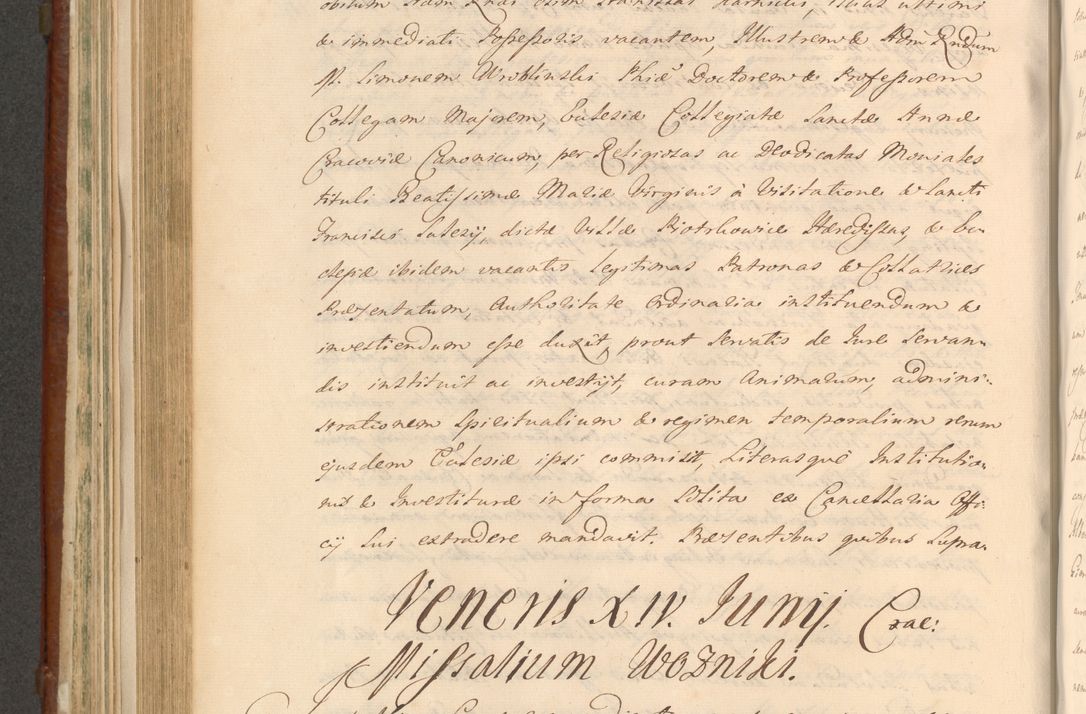 obitum Adm Rndi olim Stanislai illius ultimi
& immediati Possessoris vacantem, Illustrem & Adm Rndum
M. Simonem Wroblinski Phiae Doctorem & Professorem
Collegam Majorem, Ecclesiae Collegiatae Sanctae Annae
Cracoviae Canonicum, per Religiosas ac Deodicatas Moniales
tituli Beatissimae Mariae Virginis à Visitatione & Sancti
Francisci Salezij, dictae Villae Piotrkowice Haeredissas, & Ec-
clesiae ibidem vacantis legitimas Patronas & Collatrices
Praesentatum, Authoritate ordinaria instituendum &
investiendum esse duxit, prout servatis de Iure servan-
dis instituit ac investijt, curam animarum, admini-
strationem spiritualium & regimen temporalium rerum
ejusdem Ecclesiae ipsi commisit, Literasque Institutio-
nis & Investiturae in forma solita ex Cancellaria Offi-
cij sui extradere mandavit. Praesentibus quibus supra.
Veneris XIV. Iunij. Crac:
Missalium Wozniki.